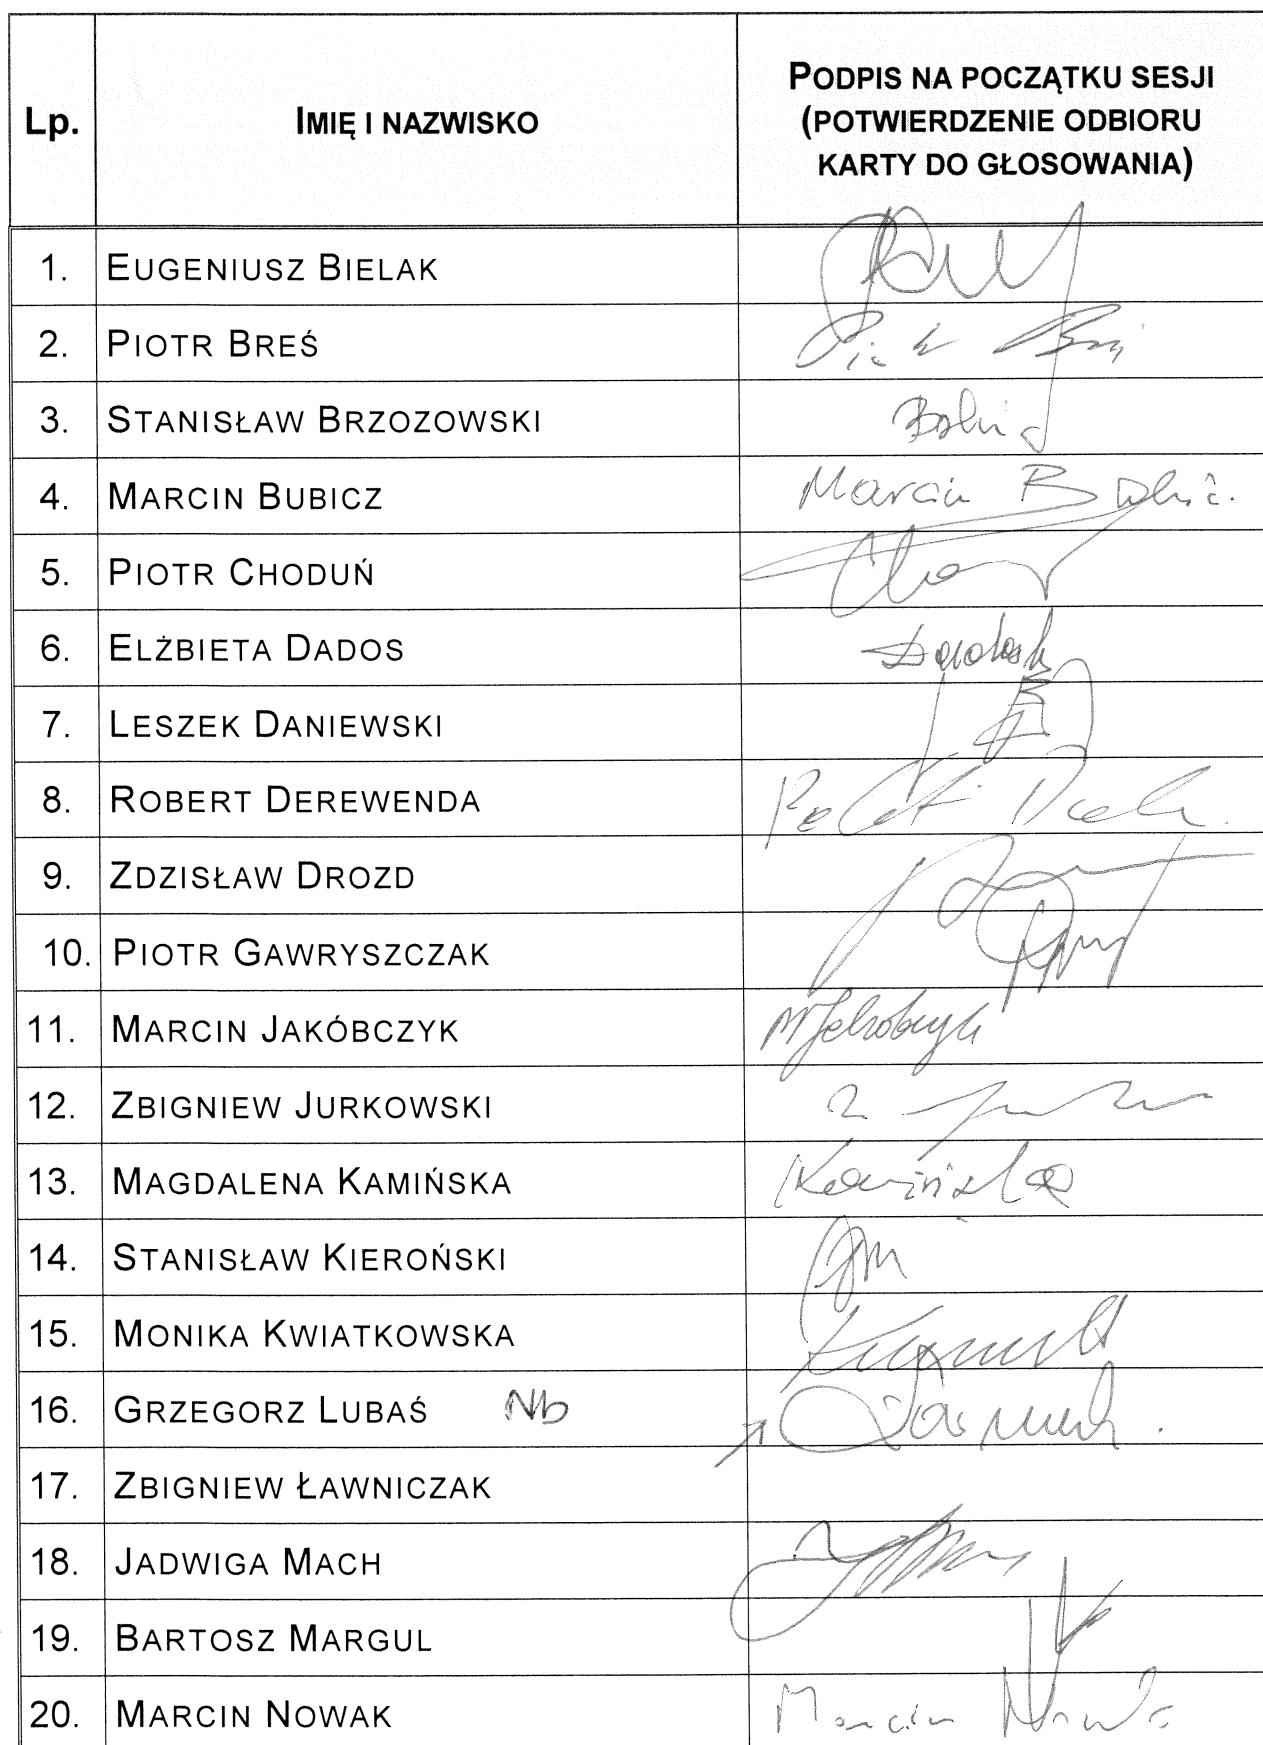 Lp. IMIĘ I NAZWISKO PODPIS NA POCZĄTKU SESJI
(POTWIERDZENIE ODBIORU
KARTY DO GŁOSOWANIA)
1. EUGENIUSZ BIELAK
2. PIOTR BREŚ
3. STANISŁAW BRZOZOWSKI
4. MARCIN BUBICZ Marcin
5. PIOTR CHODUŃ
6. ELŻBIETA DADOS
7. LESZEK DANIEWSKI
8. ROBERT DEREWENDA
9. ZDZISŁAW DROZD
10. PIOTR GAWRYSZCZAK
11. MARCIN JAKÓBCZYK
12. ZBIGNIEW JURKOWSKI
13. MAGDALENA KAMIŃSKA Kamińska
14. STANISŁAW KIEROŃSKI
15. MONIKA KWIATKOWSKA
16. GRZEGORZ LUBAŚ Nb
17. ZBIGNIEW ŁAWNICZAK
18. JADWIGA MACH
19. BARTOSZ MARGUL
20. MARCIN NOWAK Marcin Nowak